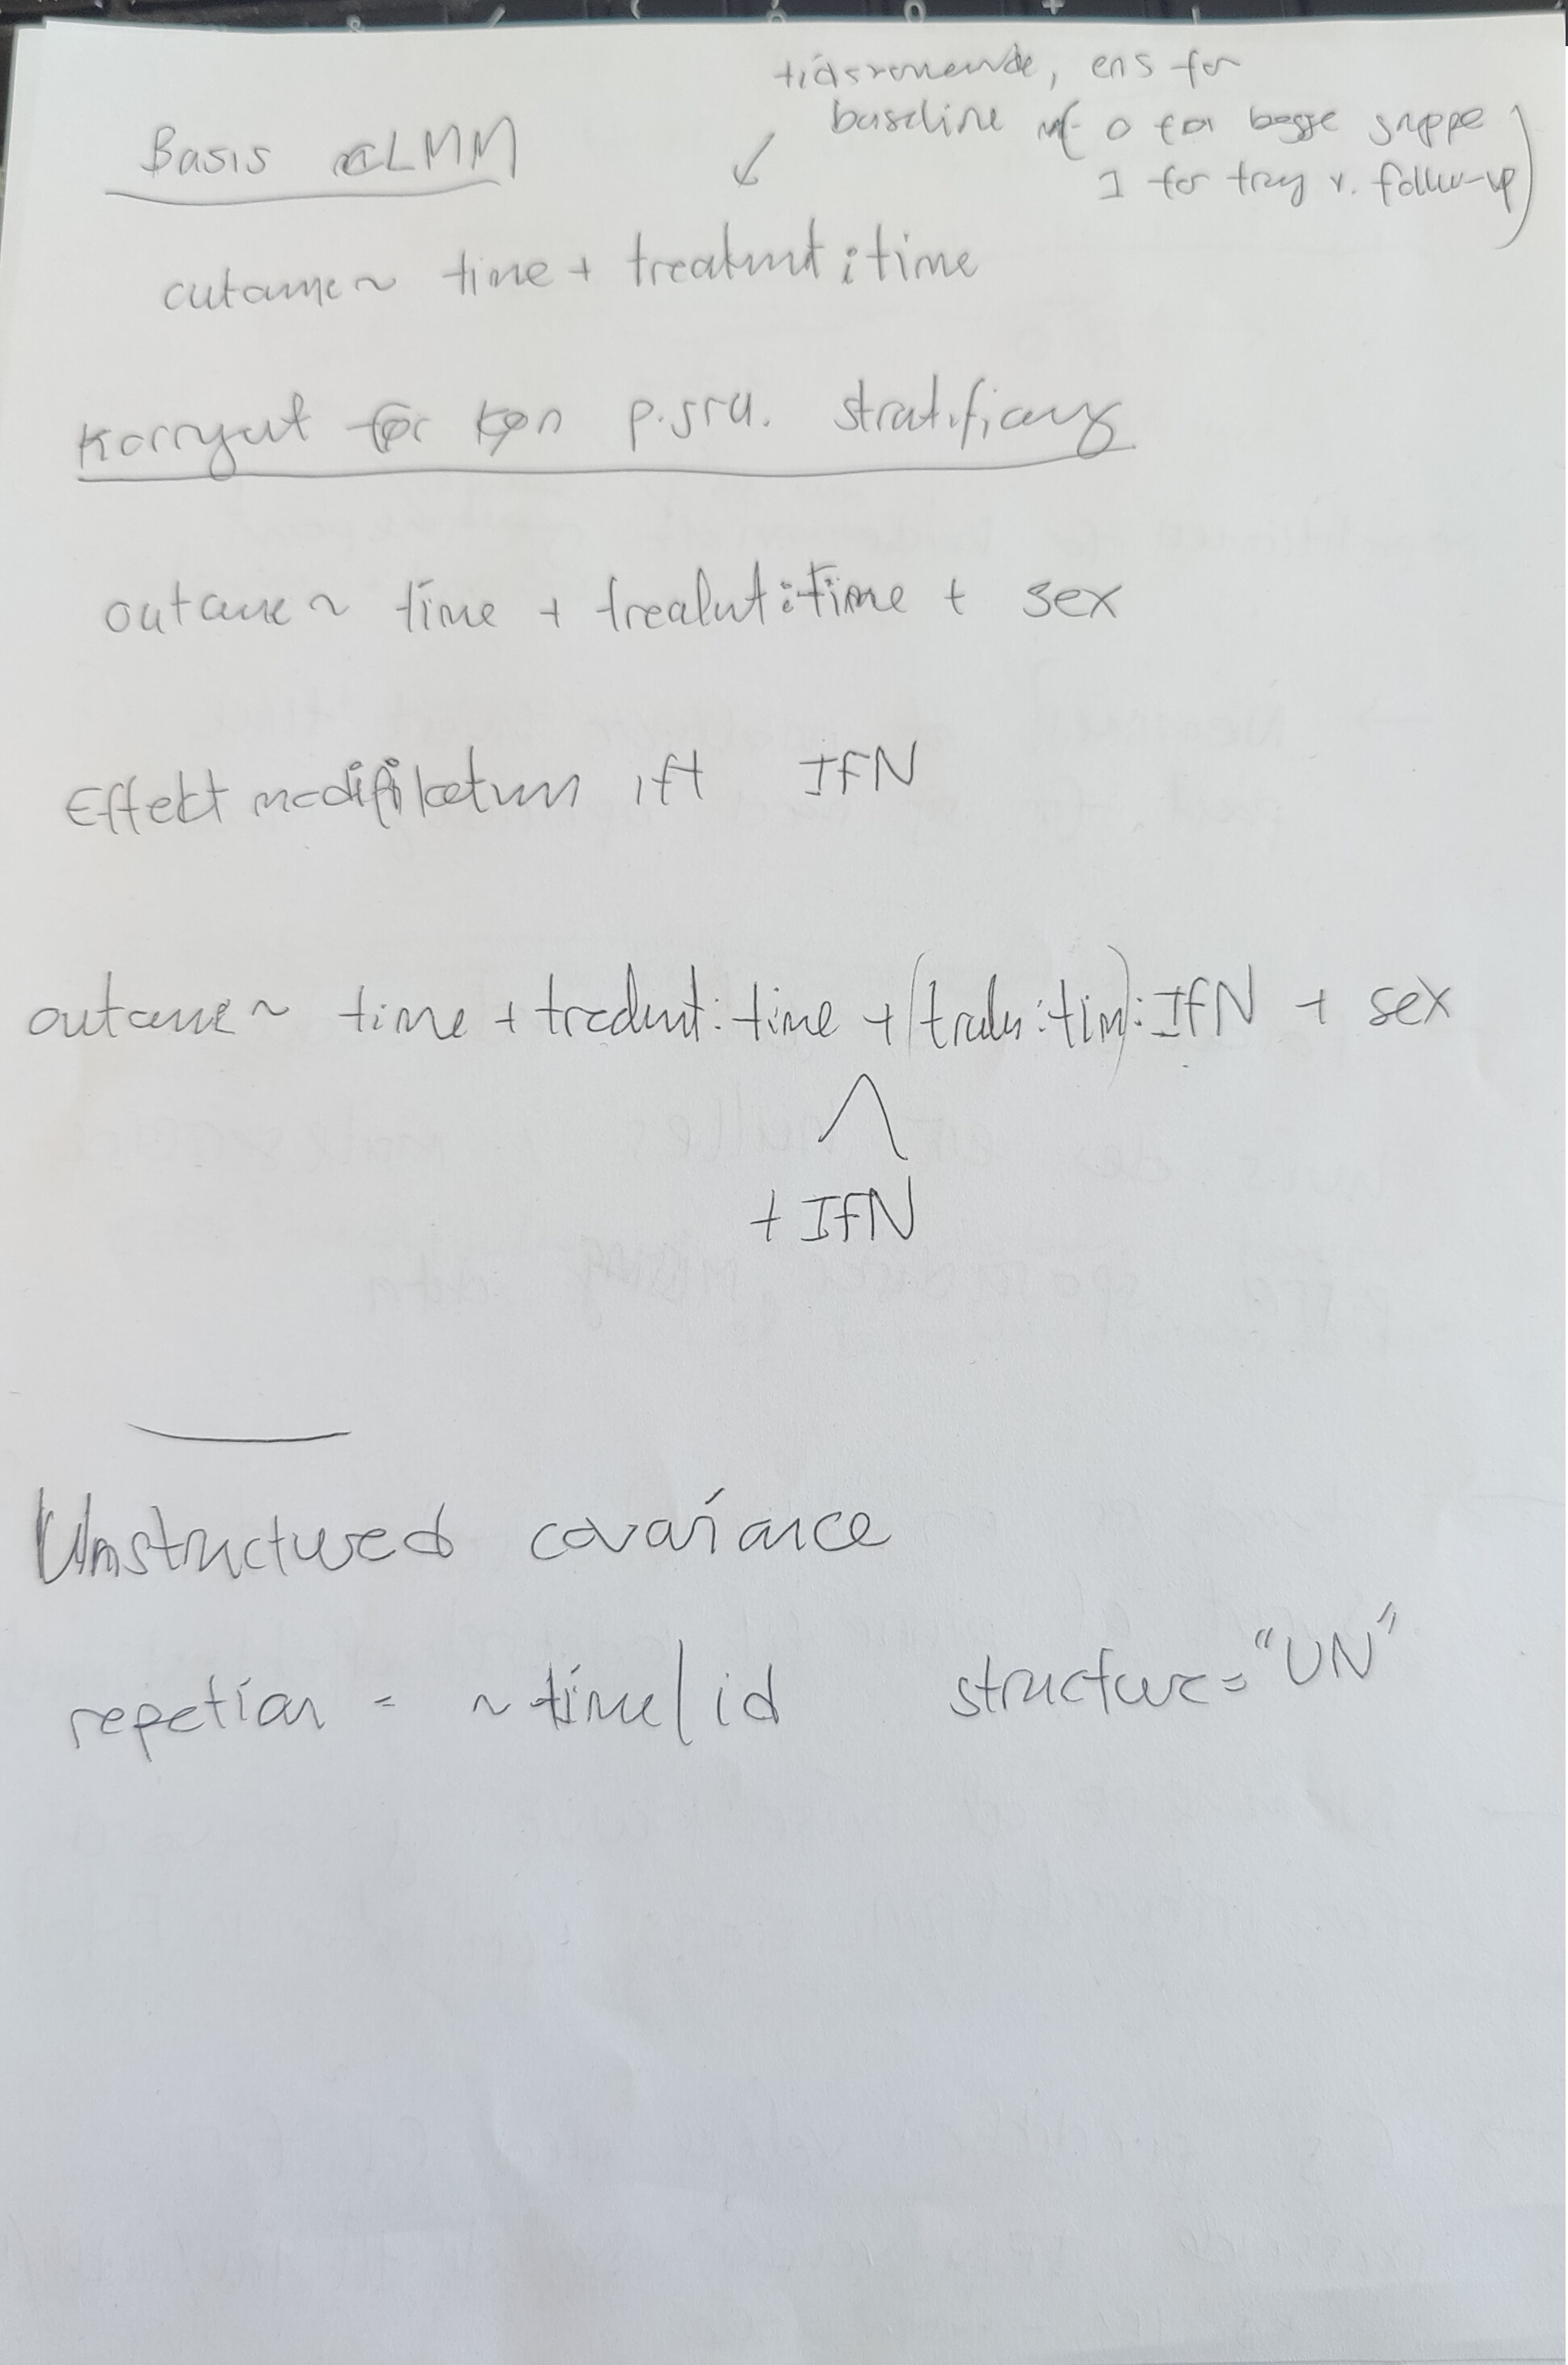 tidsvarierende, ens for
baseline m/ 0 for begge gruppe
1 for trey v. follow-up)
Basis cLMM
outcome ~ time + treatment:time
Korrigeret for køn p.gra. stratificering
outcome ~ time + treatment:time + sex
Effekt modifikation ift IFN
outcome ~ time + treatment:time + (treatm:tim):IFN + sex
+ IFN
Unstructured covariance
repetion = ~time/id structure="UN"